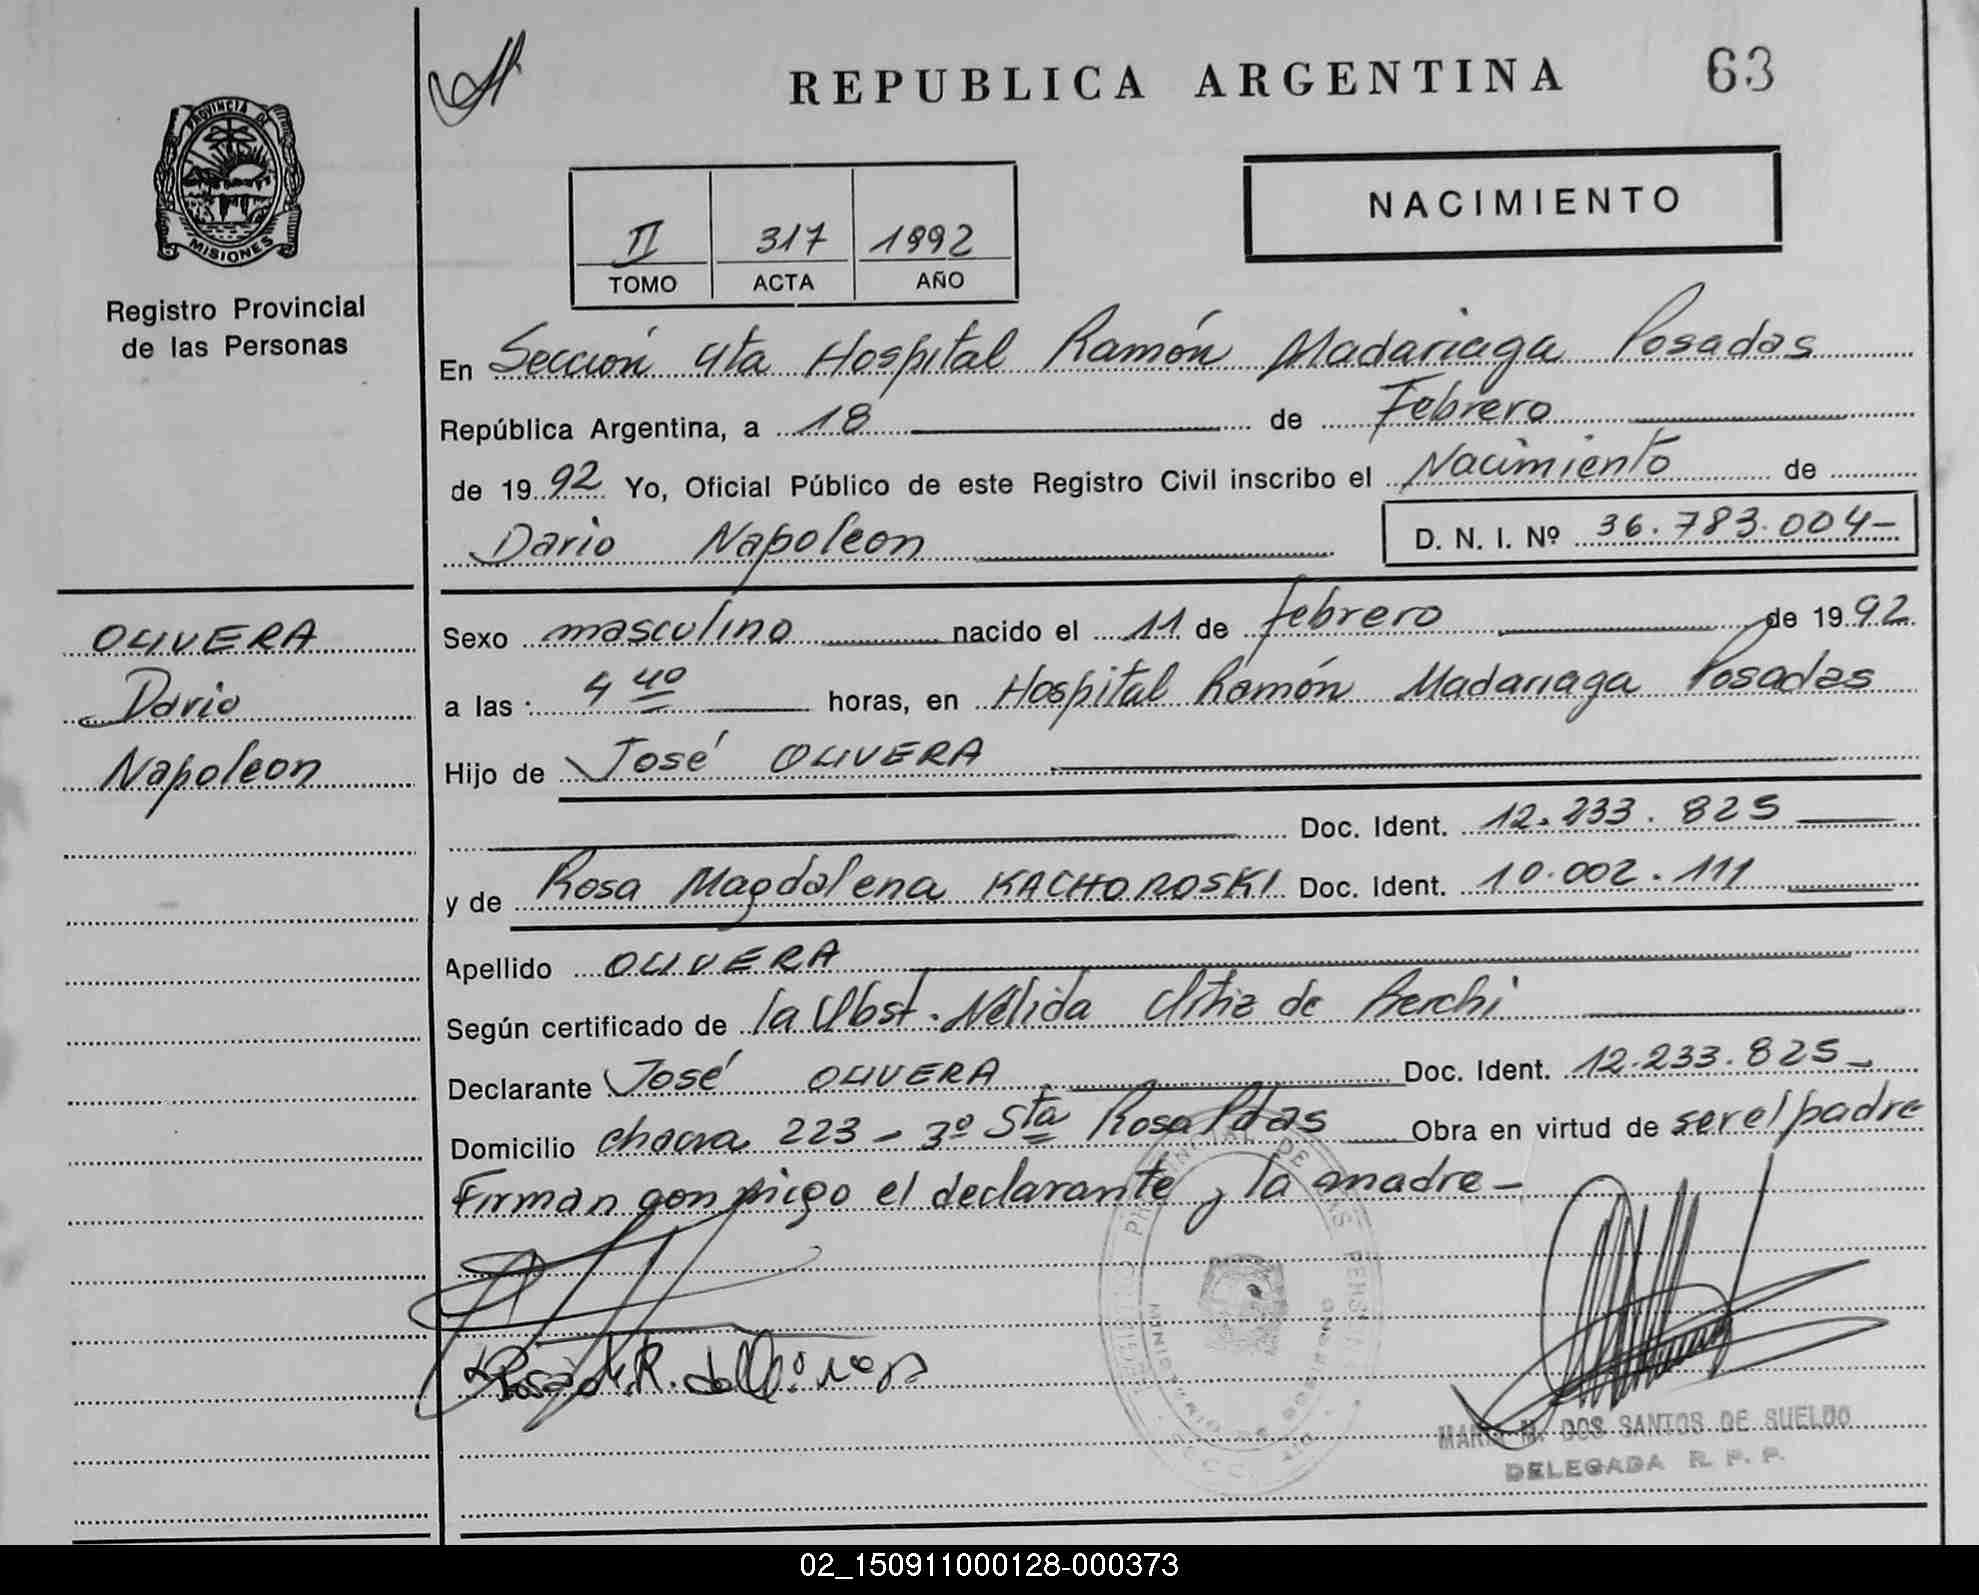 REPUBLICA ARGENTINA 63
PROVINCIA DE
MISIONES
Registro Provincial
de las Personas
NACIMIENTO
II 317 1992
TOMO ACTA AÑO
En Sección 4ta Hospital Ramón Madariaga Posadas
República Argentina, a 18 de Febrero
de 1992 Yo, Oficial Público de este Registro Civil inscribo el Nacimiento de
Dario Napoleon D. N. I. Nº 36.783.004-
OLIVERA
Dario
Napoleon
Sexo masculino nacido el 11 de febrero de 1992
a las 4 40 horas, en Hospital Ramón Madariaga Posadas
Hijo de José OLIVERA
Doc. Ident. 12.233.825
y de Rosa Magdalena KACHOROSKI Doc. Ident. 10.002.111
Apellido OLIVERA
Según certificado de la Obst. Nélida Ortiz de Berchi
Declarante José OLIVERA Doc. Ident. 12.233.825-
Domicilio chacra 223 - 3º Sta Rosa Pdas Obra en virtud de ser el padre
Firman conmigo el declarante y la madre-
MARIA M. DOS SANTOS DE SUELDO
DELEGADA R. P. P.
02_150911000128-000373